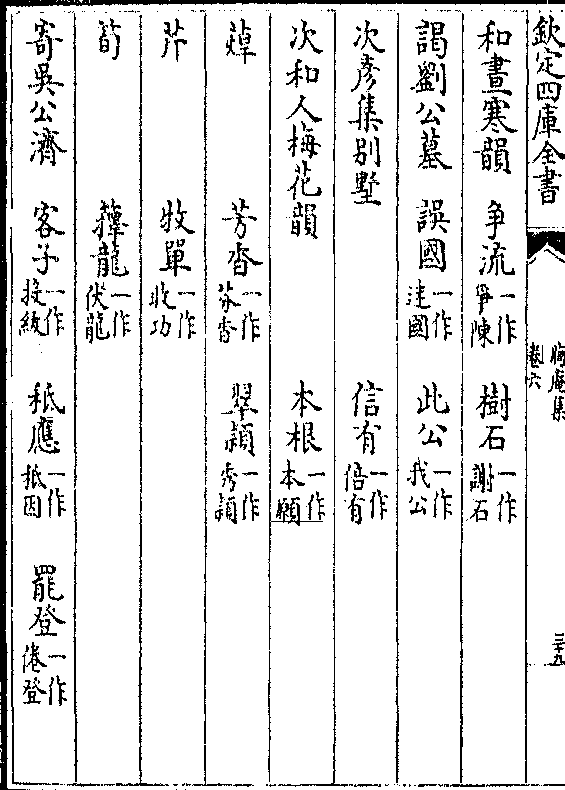 欽定四庫全書
晦庵集
卷六
三十九
和晝寒韻　爭流一作爭陳　樹石一作謝石
謁劉公墓　誤國一作迷國　此公一作我公
次彥集別墅　信有一作倍有
次和人梅花韻　本根一作本願
蔊　芳杳一作芬香　翠穎一作秀穎
芹　收單一作收功
筍　籜龍一作伏龍
寄吳公濟　客子一作投紱　秪應一作抵因　罷登一作倦登